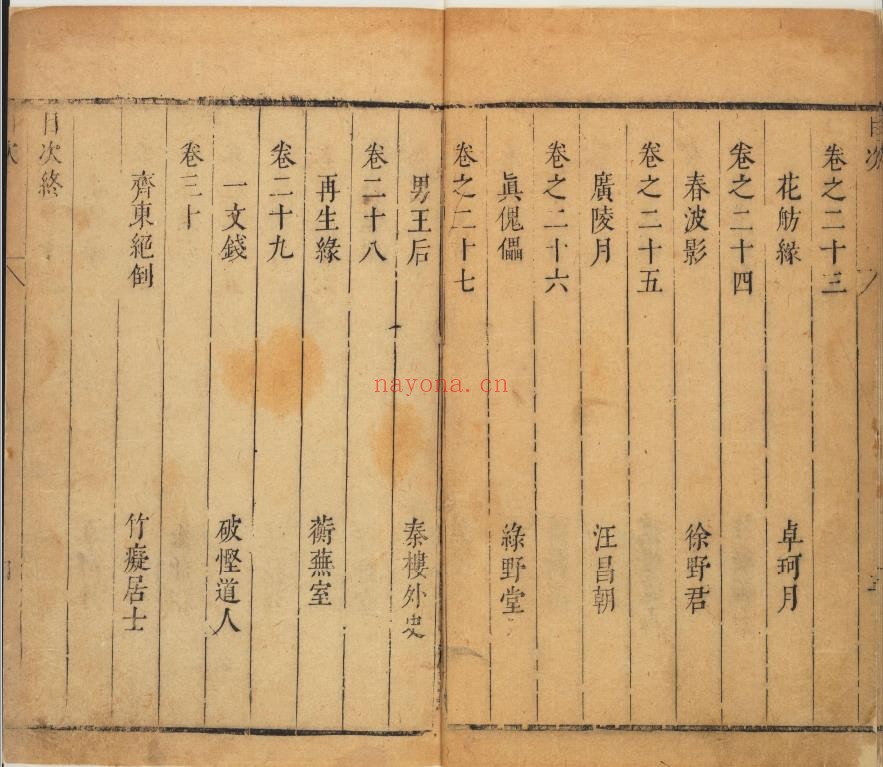 目次
卷之二十三
花舫緣 卓珂月
卷之二十四
春波影 徐野君
卷之二十五
廣陵月 汪昌朝
卷之二十六
眞傀儡 綠野堂
卷之二十七
男王后 秦樓外史
卷二十八
再生緣 蘅蕪室
卷二十九
一文錢 破慳道人
卷三十
齊東絕倒 竹癡居士
目次終
nayona.cn